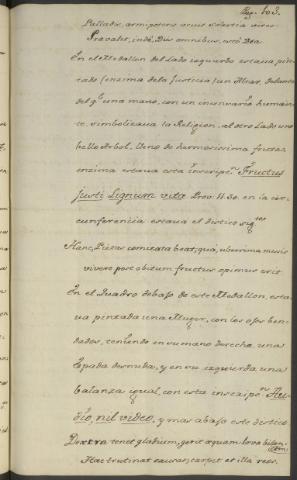 Pag. 103.
Palladis, armipotens eruit solertia vires
Prevalet, inde, Diis omnibus, esto Dea
En el Medallon del Lado izquierdo estava pin-
tado (ensima dela Justicia) un Altar, delante
del q.e una mano, con un insensario humean-
te, simbolicava la Religion, al otro Lado una
bello Arbol, lleno de hermosissima frutas,
ensima estava esta inscript.n Fructus
Justi Lignum vitæ Prov. 11. 30. en la cir-
cunferencia estava el distico sig.te
Hanc, Pietas comitata beat, qua, uberrima, nisis
vivere post obitum fructus opimus erit.
En el Quadro debajo de este Medallon, esta-
va pintada una Muger, con los ojos ben-
dados, teniendo en su mano derecha una
Espada desnuda, y en su izquierda una
balanza igual, con esta inscrip.n Au-
dio, nil video, y mas abajo este distico
Dextra tenet gladium, gerit æquam leva bilan-
cem
Hæc trutinat causas, carpit et illa reos.